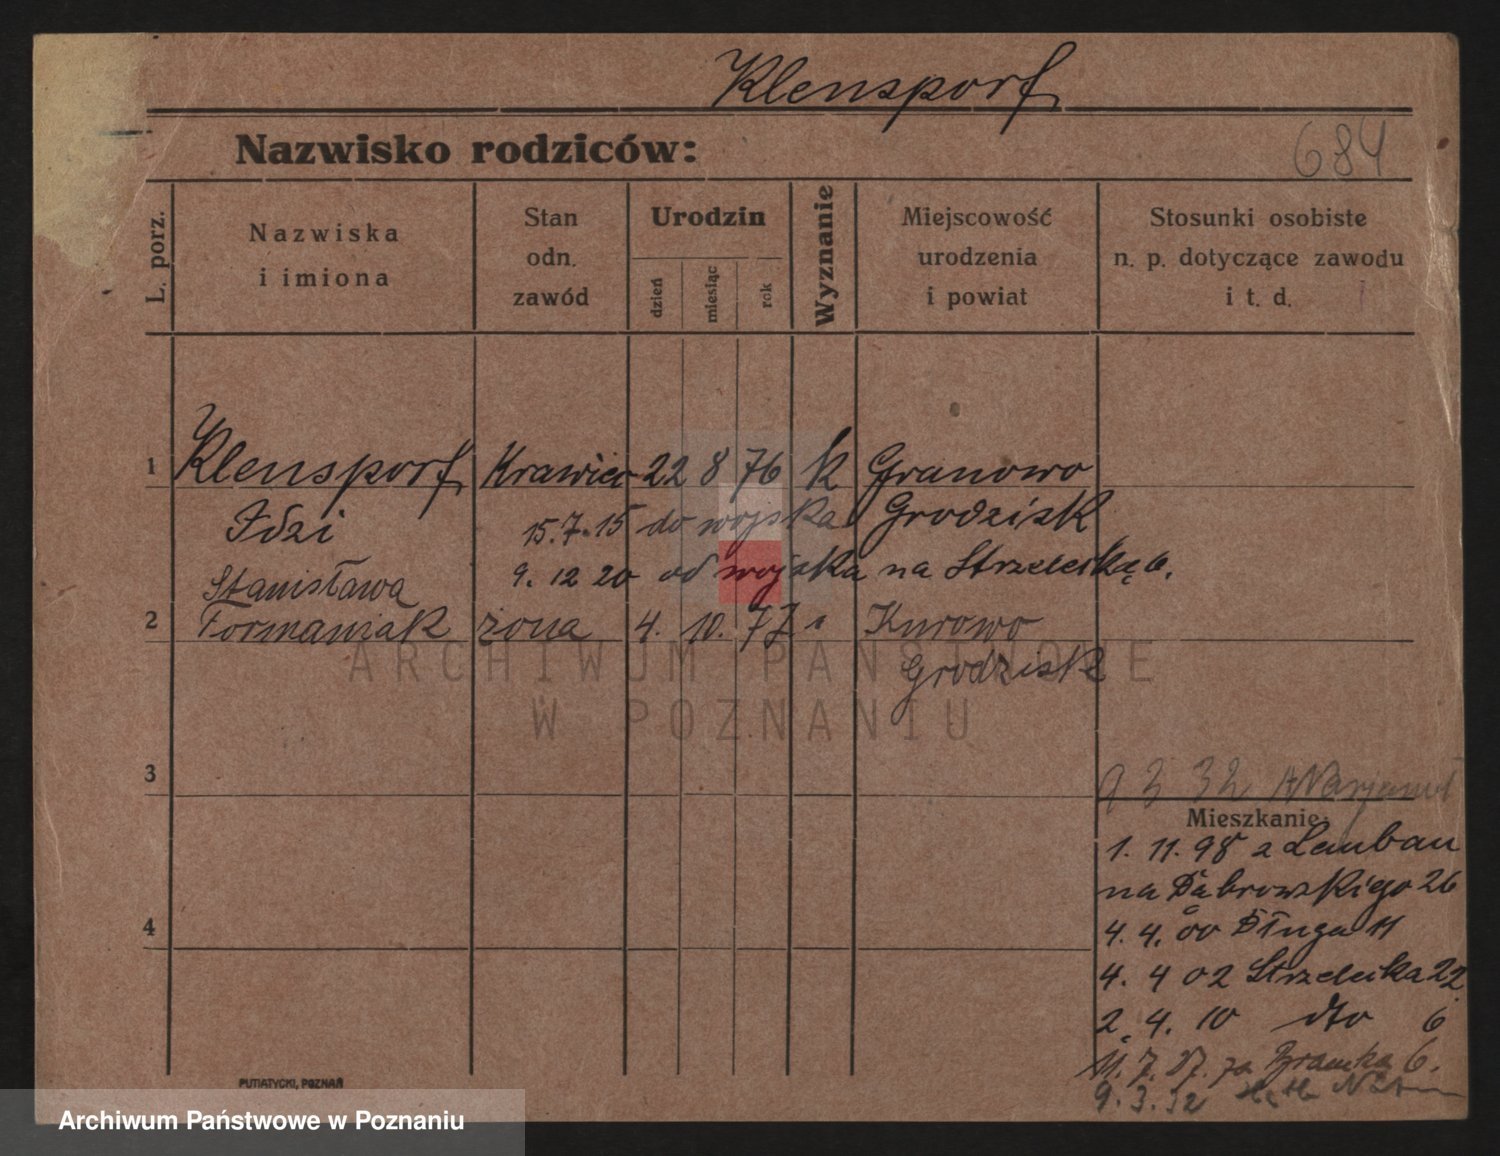 Klensporf
Nazwisko rodziców:
684
L. porz.
Nazwiska
i imiona
Stan
odn.
zawód
Urodzin
dzień
miesiąc
rok
Wyznanie
Miejscowość
urodzenia
i powiat
Stosunki osobiste
n. p. dotyczące zawodu
i t. d.
1 Klensporf Krawiec 22 8 76 k Granowo
Idzi 15.7.15 do wojska Grodzisk
9. 12 20 od wojska na Strzelecką 6.
Stanisława
2 Formaniak żona 4. 10. 77 Kurowo
Grodzisk
ARCHIWUM PAŃSTWOWE
W POZNANIU
3
9 3 32
Mieszkanie:
1. 11. 98 z Lauban
na Dąbrowskiego 26
4. 4. 00 Długa 11
4. 4 02 Strzelecka 22
2. 4. 10 dto 6
11. 7. 6.
9. 3. 32
4
PUTIATYCKI, POZNAŃ
Archiwum Państwowe w Poznaniu